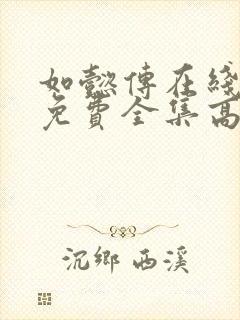 如懿傳在綫
免費全集高
沉鄉 西溪